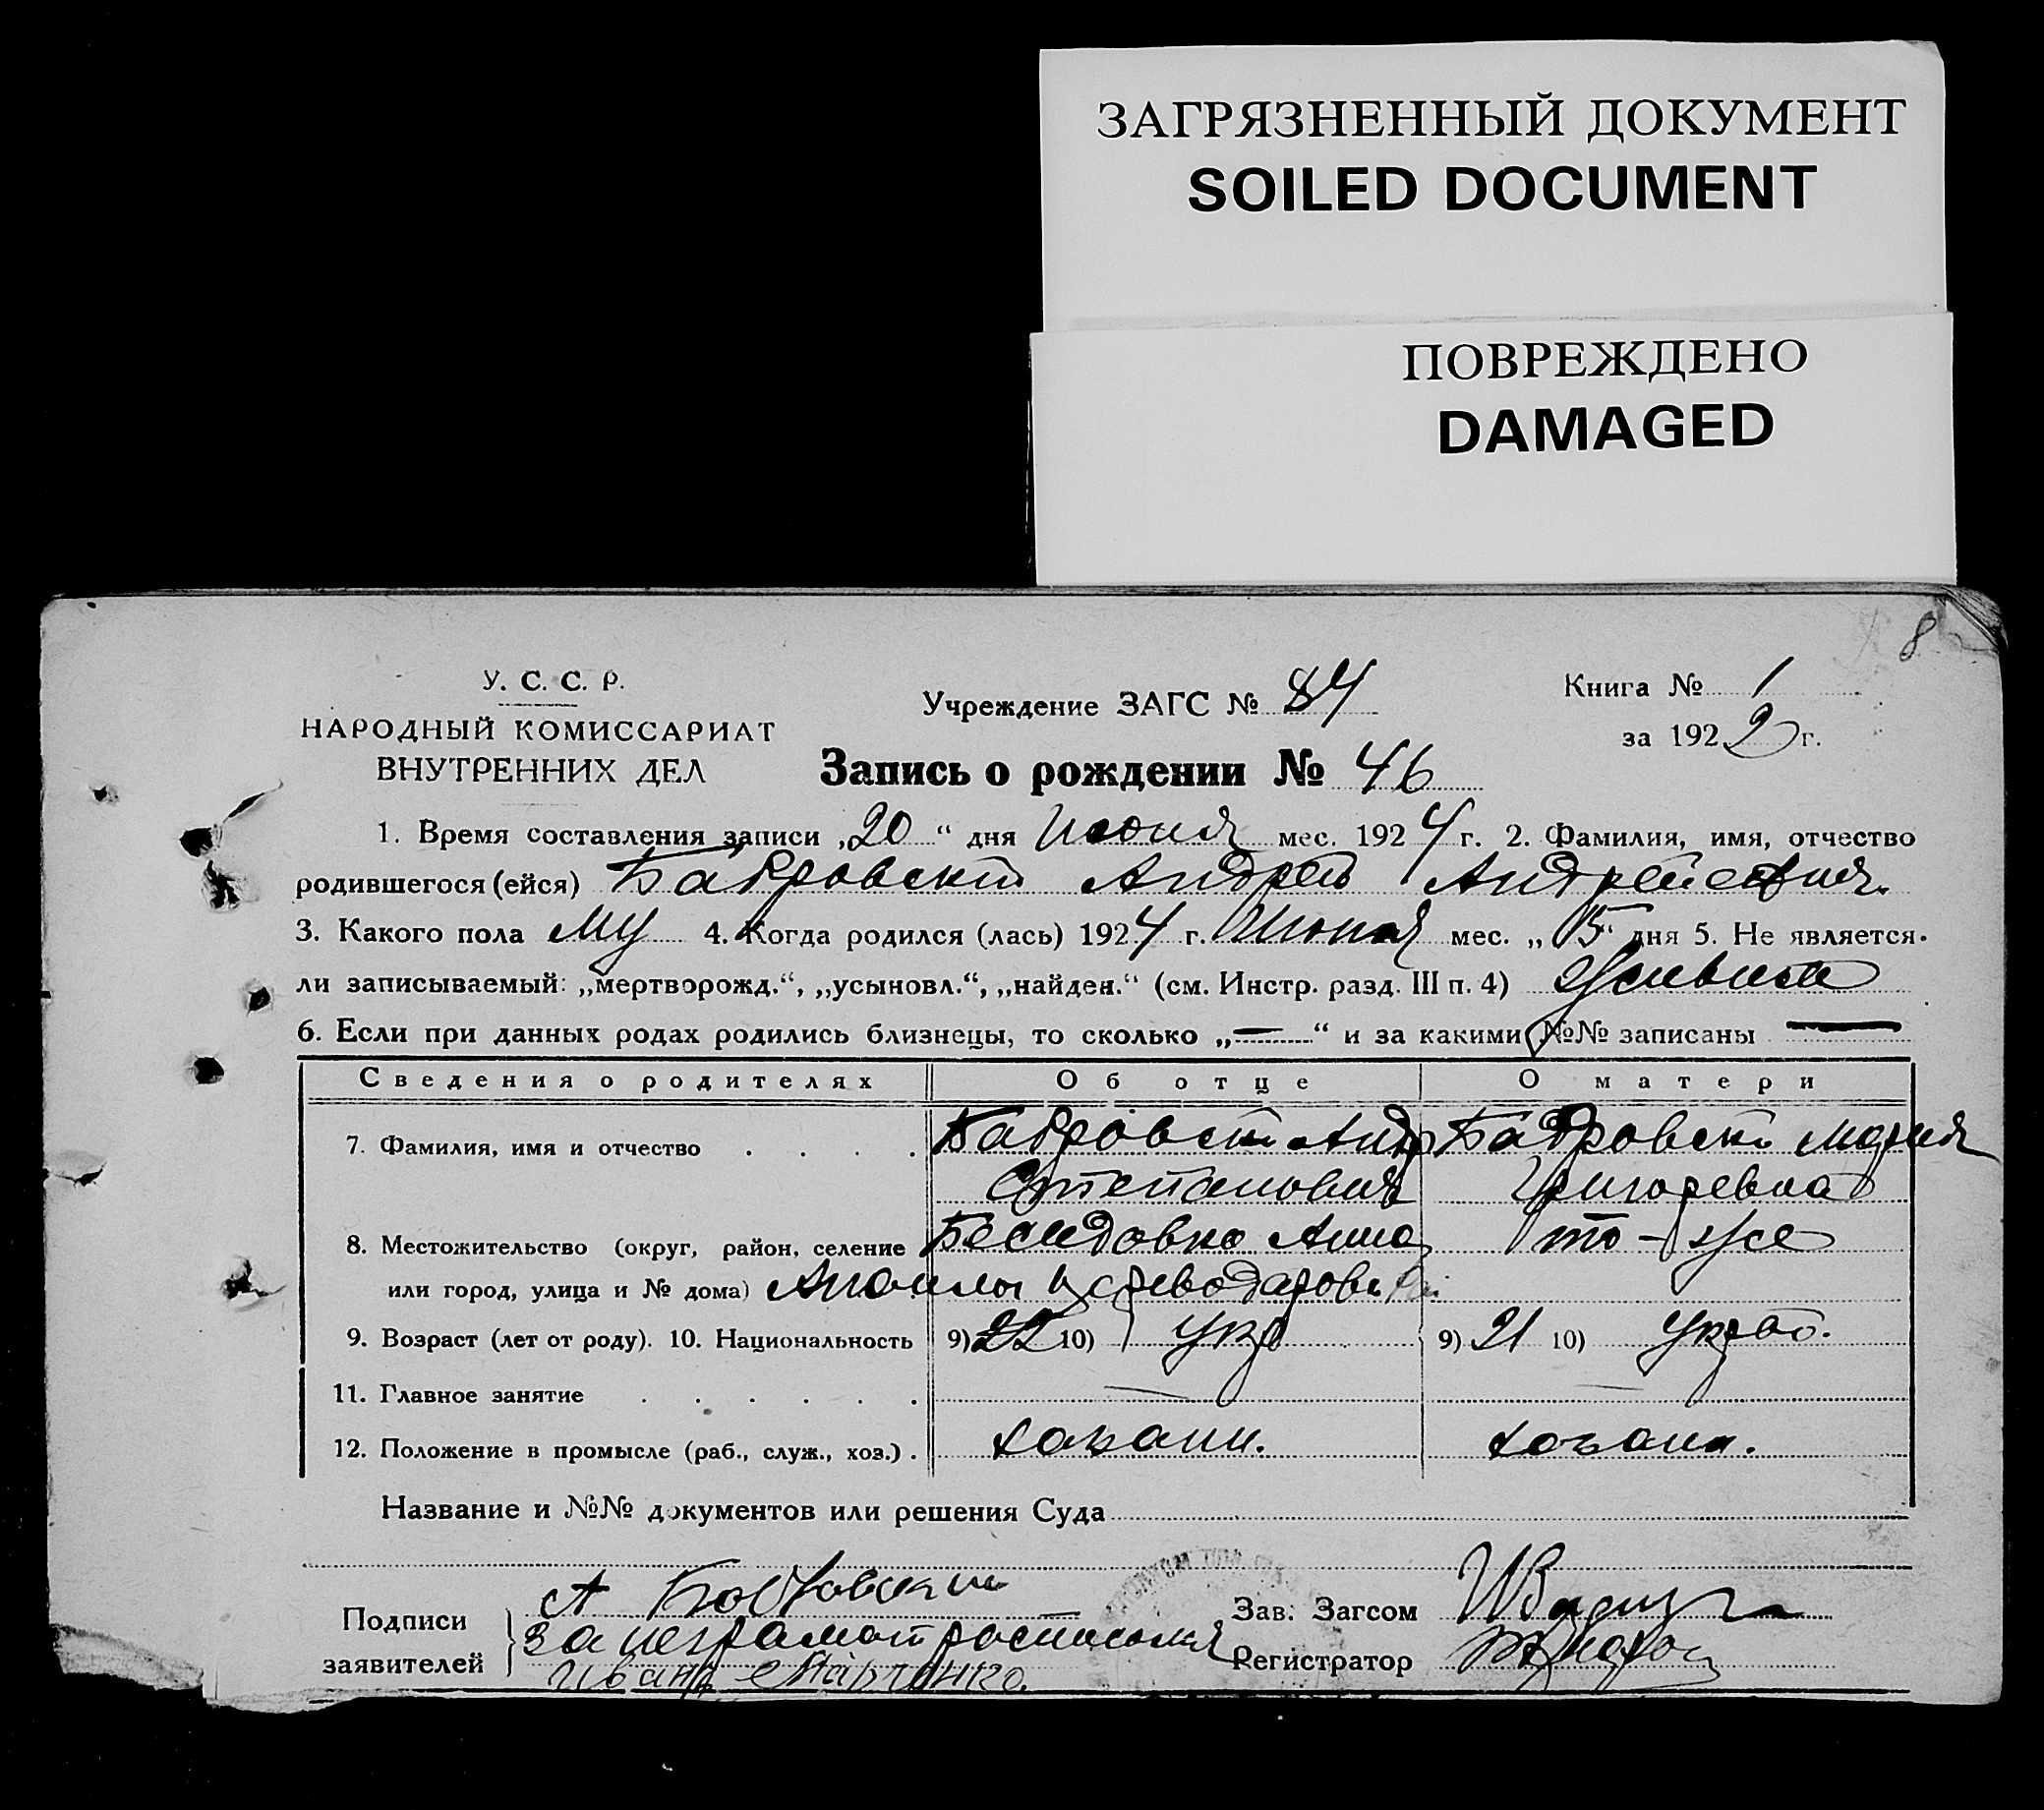 ЗАГРЯЗНЕННЫЙ ДОКУМЕНТ
SOILED DOCUMENT
ПОВРЕЖДЕНО
DAMAGED
8
У. С. С. Р.
НАРОДНЫЙ КОМИССАРИАТ
ВНУТРЕННИХ ДЕЛ
Учреждение ЗАГС № 84
Запись о рождении № 46
Книга № 1
за 1922 г.
1. Время составления записи „20“ дня Июня мес. 1924 г. 2. Фамилия, имя, отчество
родившегося (ейся) Бабровский Андрей Андреевич
3. Какого пола му 4. Когда родился (лась) 1924 г. Июня мес. „15“ дня 5. Не является
ли записываемый: „мертворожд.“, „усыновл.“, „найден.“ (см. Инстр. разд. III п. 4)
6. Если при данных родах родились близнецы, то сколько „—“ и за какими №№ записаны —
Сведения о родителях Об отце О матери
7. Фамилия, имя и отчество Бабровски Андр Бабровски Мария
Степанович Григоревна
8. Местожительство (округ, район, селение то-же
или город, улица и № дома)
9. Возраст (лет от роду). 10. Национальность 9) 22 10) Укр 9) 21 10)
11. Главное занятие
12. Положение в промысле (раб., служ., хоз.)
Название и №№ документов или решения Суда
Подписи
заявителей
за неграмот росписался
Иванъ Марченко
Зав. Загсом
Регистратор